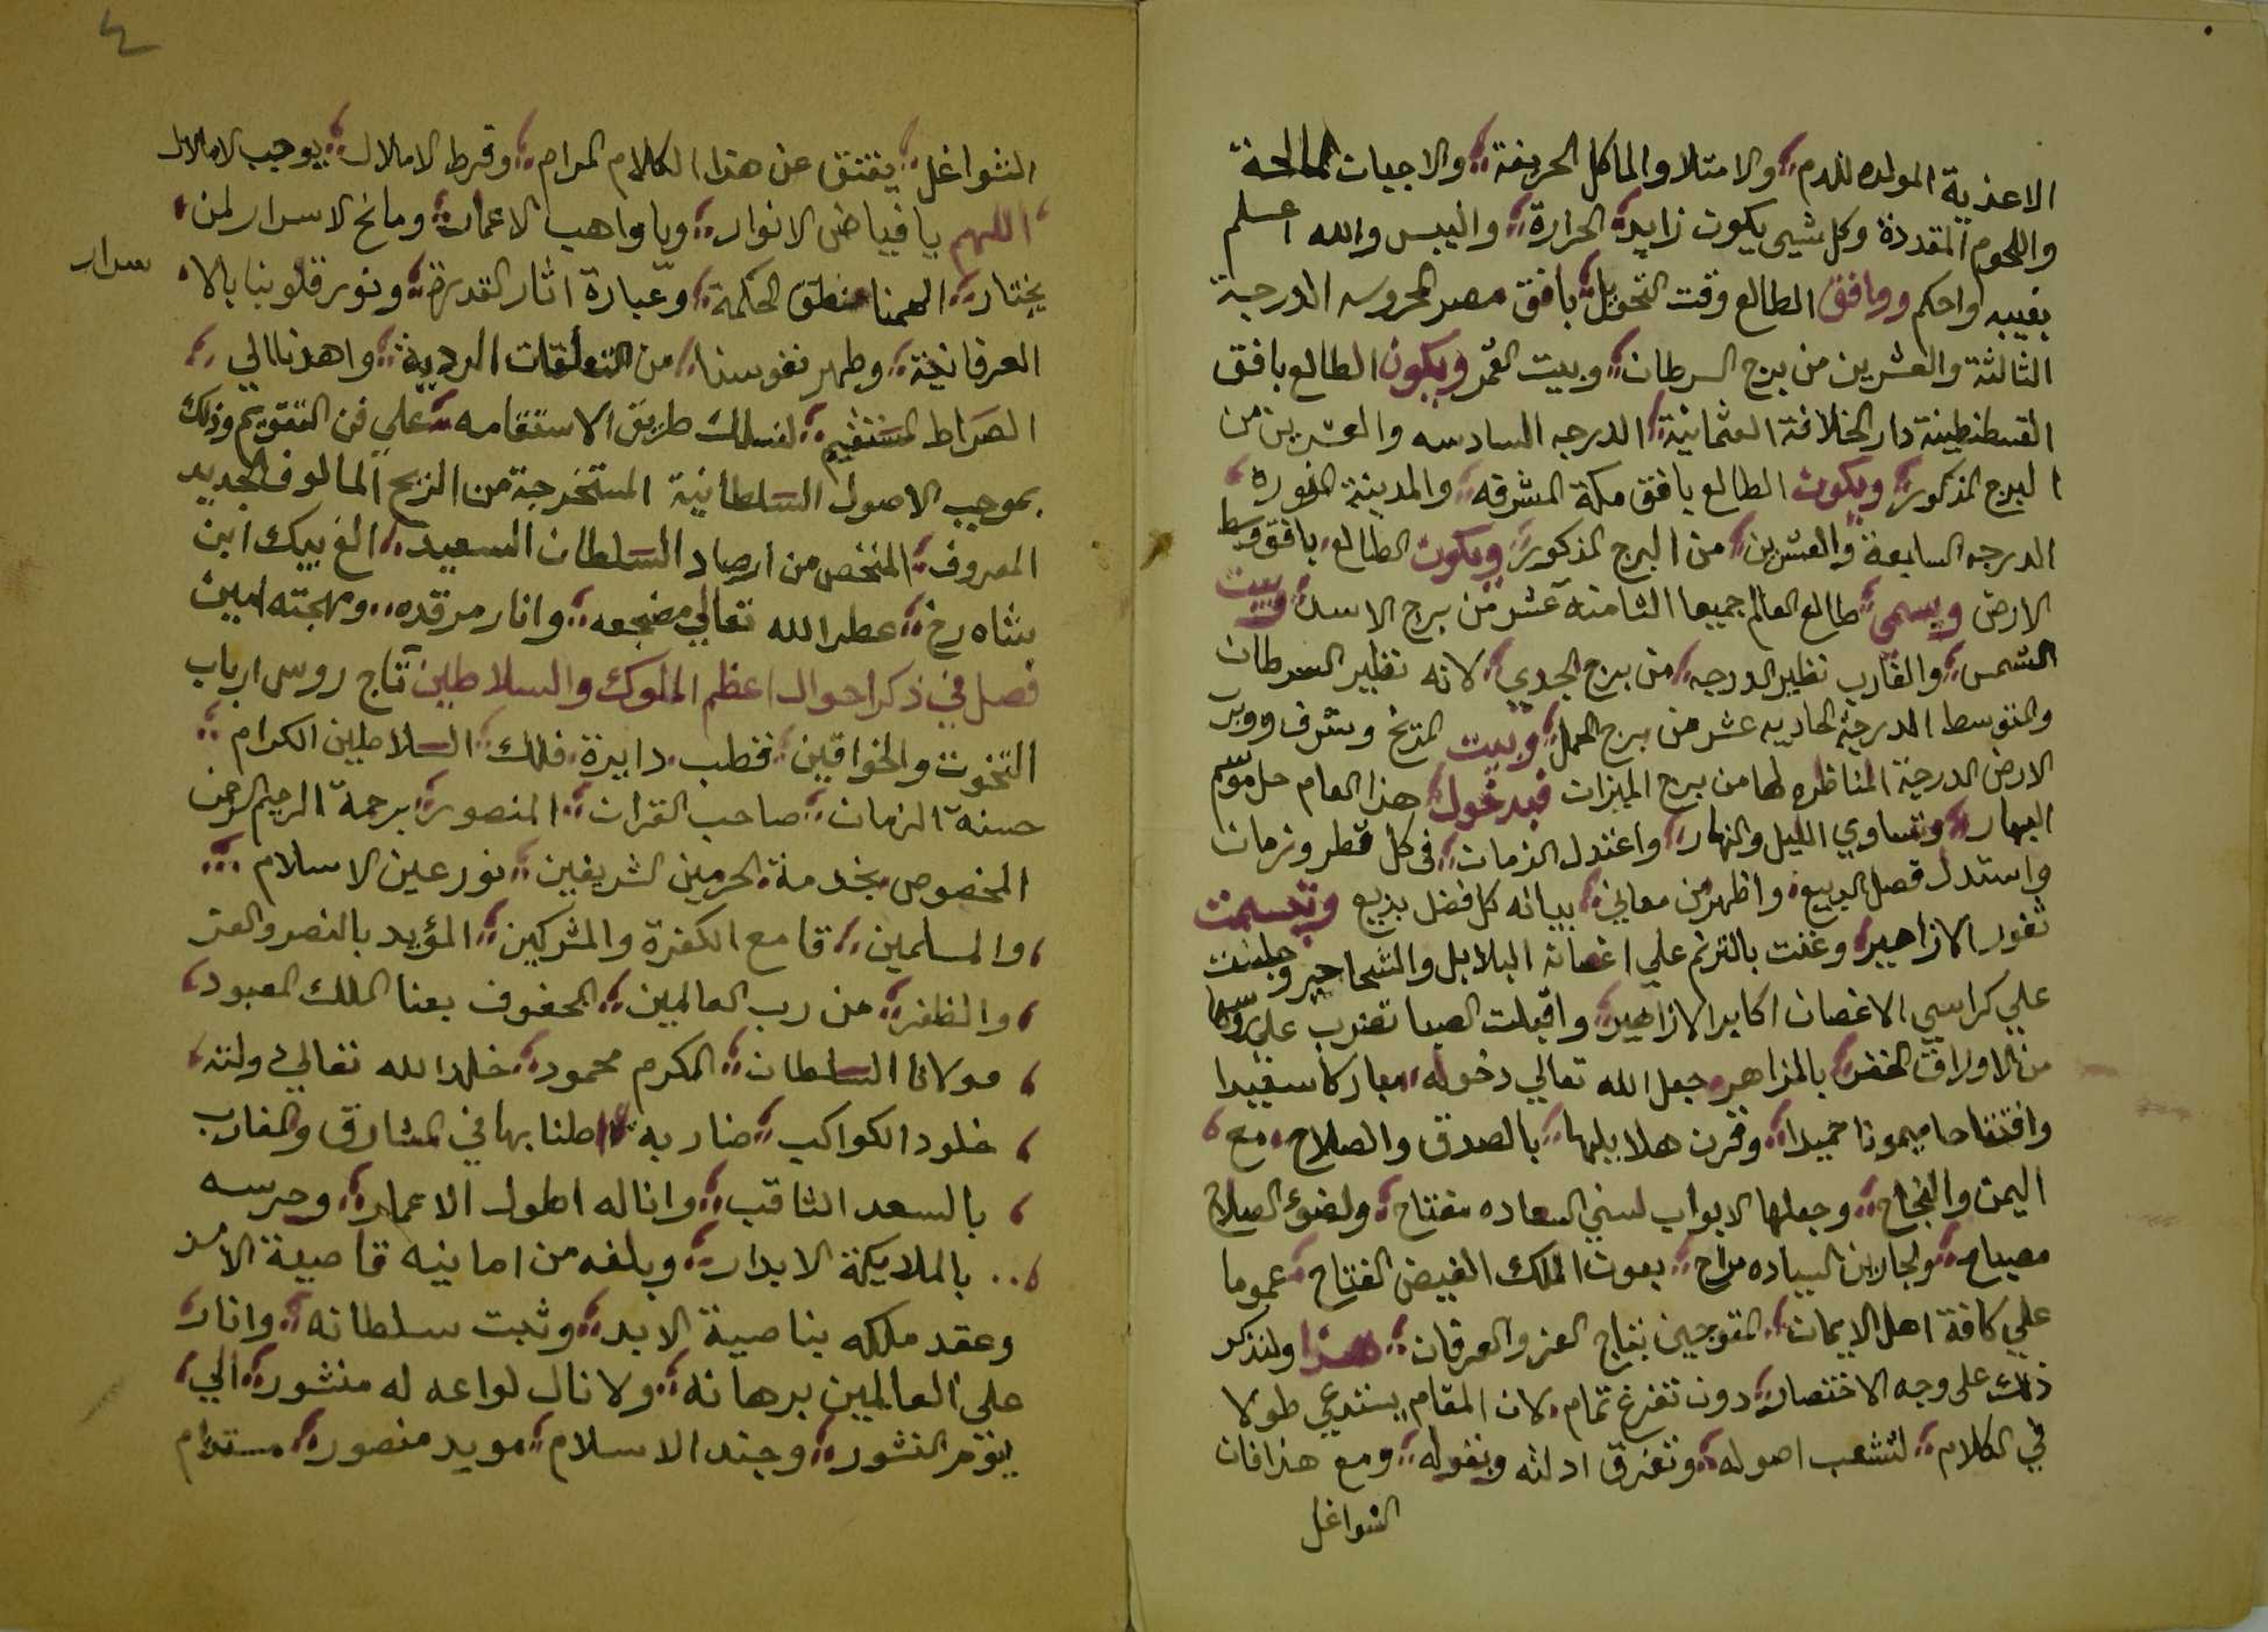 الاغذية المولده للدم والامتلا والماكل الحريفة والاجبات المالحة
واللحوم المقددة وكل شيى يكون زايد الحرارة واليبس والله اعلم
بغيبه واحكم ووافق الطالع وقت التحويل بافق مصر المحروسه الدرجة
الثالثة والعشرين من برج السرطان وبيت القمر ويكون الطالع بافق
القسطنطينة دار الخلافة العثمانية الدرجه السادسه والعشرين من
البرج المذكور ويكون الطالع بافق مكة المشرفه والمدينة المنوره
الدرجه السابعة والعشرين من البرج المذكور ويكون الطالع بافق وسط
الارض ويسمي طالع العالم جميعا الثامنه عشر من برج الاسد وبيت
الشمس والغارب نظير الدرجه من برج الجدي لانه نظير السرطان
والمتوسط الدرجة الحاديه عشر من برج الحمل وبيت المريخ وشرف ووبر
الارض الدرجة المناظره لها من برج الميزان فبدخول هذا العام حل موسم
البهار وتساوي الليل والنهار واعتدل الزمان فى كل قطر وزمان
واستدل فصل الربيع واظهر من معاني بيانه كل فضل بديع وتبسمت
ثغور الازاهير وغنت بالترنم علي اغصانه البلابل والشحاحير وجلست
علي كراسي الاغصان اكابر الازاهير واقبلت الصبا تضرب على روسها
من الاوراق الخضر بالمزاهر جعل الله تعالي دخوله مباركا سعيدا
وافتتاحا ميمونا حميدا وقرن هلا بليها بالصدق والصلاح مع
اليمن والنجاح وجعلها لابواب لسني السعاده مفتاح ولضوء الصلاح
مصباح السياده مراح بعون الملك الفيض الفتاح عموما
علي كافة اهل الايمان المتوجين بتاج العز والعرفان هذا ولنذكر
ذلك على وجه الاختصار دون تفرغ تمام لان المقام يستدعي طولا
في الكلام لتشعب اصوله وتفرق ادلته ونقوله ومع هذا فان
الشواغل
٤
الشواغل يفتق عن هذا الكلام المرام وفرط الاملال يوجب الاملال
اللهم يا فياض الانوار ويا واهب الاعمار ومانح الاسرار لمن
يختار الهمنا منطق الحكمة وعبارة اثار القدرة ونور قلوبنا بالا
سرار
العرفانية وطهر نفوسنا من التعلقات الردية واهدنا الي
الصراط المستقيم لنسلك طريق الاستقامه علي فن التقويم وذلك
بموجب الاصول السلطانية المستخرجة من الزيج المالوف الجديد
المعروف الملخص من ارصاد السلطان السعيد الغ بيك ابن
شاه رخ عطر الله تعالي مضجعه وانار مرقده ومهجته امين
فصل في ذكر احوال اعظم الملوك والسلاطين تاج روس ارباب
التخوت والخواقين قطب دايرة فلك السلاطين الكرام
حسنة الزمان صاحب القران المنصور برحمة الرحيم الرحمن
المخصوص بخدمة الحرمين الشريفين نور عين الاسلام
والمسلمين قامع الكفرة والمشركين المؤيد بالنصر والعز
والظفر من رب العالمين المحفوف بعنا الملك المعبود
مولانا السلطان المكرم محمود خلد الله تعالي دولته
خلود الكواكب ضاربه اطنابها في المشارق والمغارب
بالسعد الثاقب واناله اطول الاعمار وحرسه
بالملايكة الابرار وبلغه من امانيه قاصية الامد
وعقد ملكه بناصية الابد وثبت سلطانه وانار
على العالمين برهانه ولا زال لواعه له منشور الي
يوم النشور وجند الاسلام مويد منصور مستدام